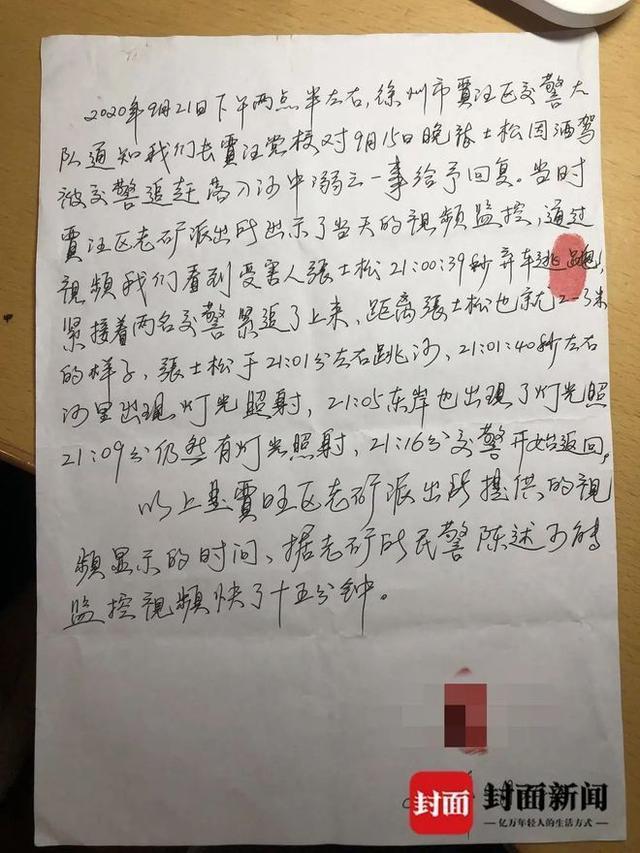 2020年9月21日下午两点半左右，徐州市賈汪区交警大
队通知我们去賈汪党校对9月15日晚張士松因酒驾
被交警追赶 落入河中溺亡一事给予回复。当时
賈汪区老矿派出所出示了当天的視频监控，通过
視频我们看到受害人張士松21:00:39秒弃车逃跑，
紧接着两名交警紧追了上来，距离張士松也就2-3米
的样子，張士松于21:01分左右跳河，21:01:40秒左右
河里出现灯光照射，21:05东岸也出现了灯光照
21:09分仍然有灯光照射，21:16分交警开始返回。
以上是賈旺区老矿派出所提供的視
频显示的时间，据老矿所民警陈述河的
监控視频快了十五分钟。
封面 封面新闻
亿万年轻人的生活方式